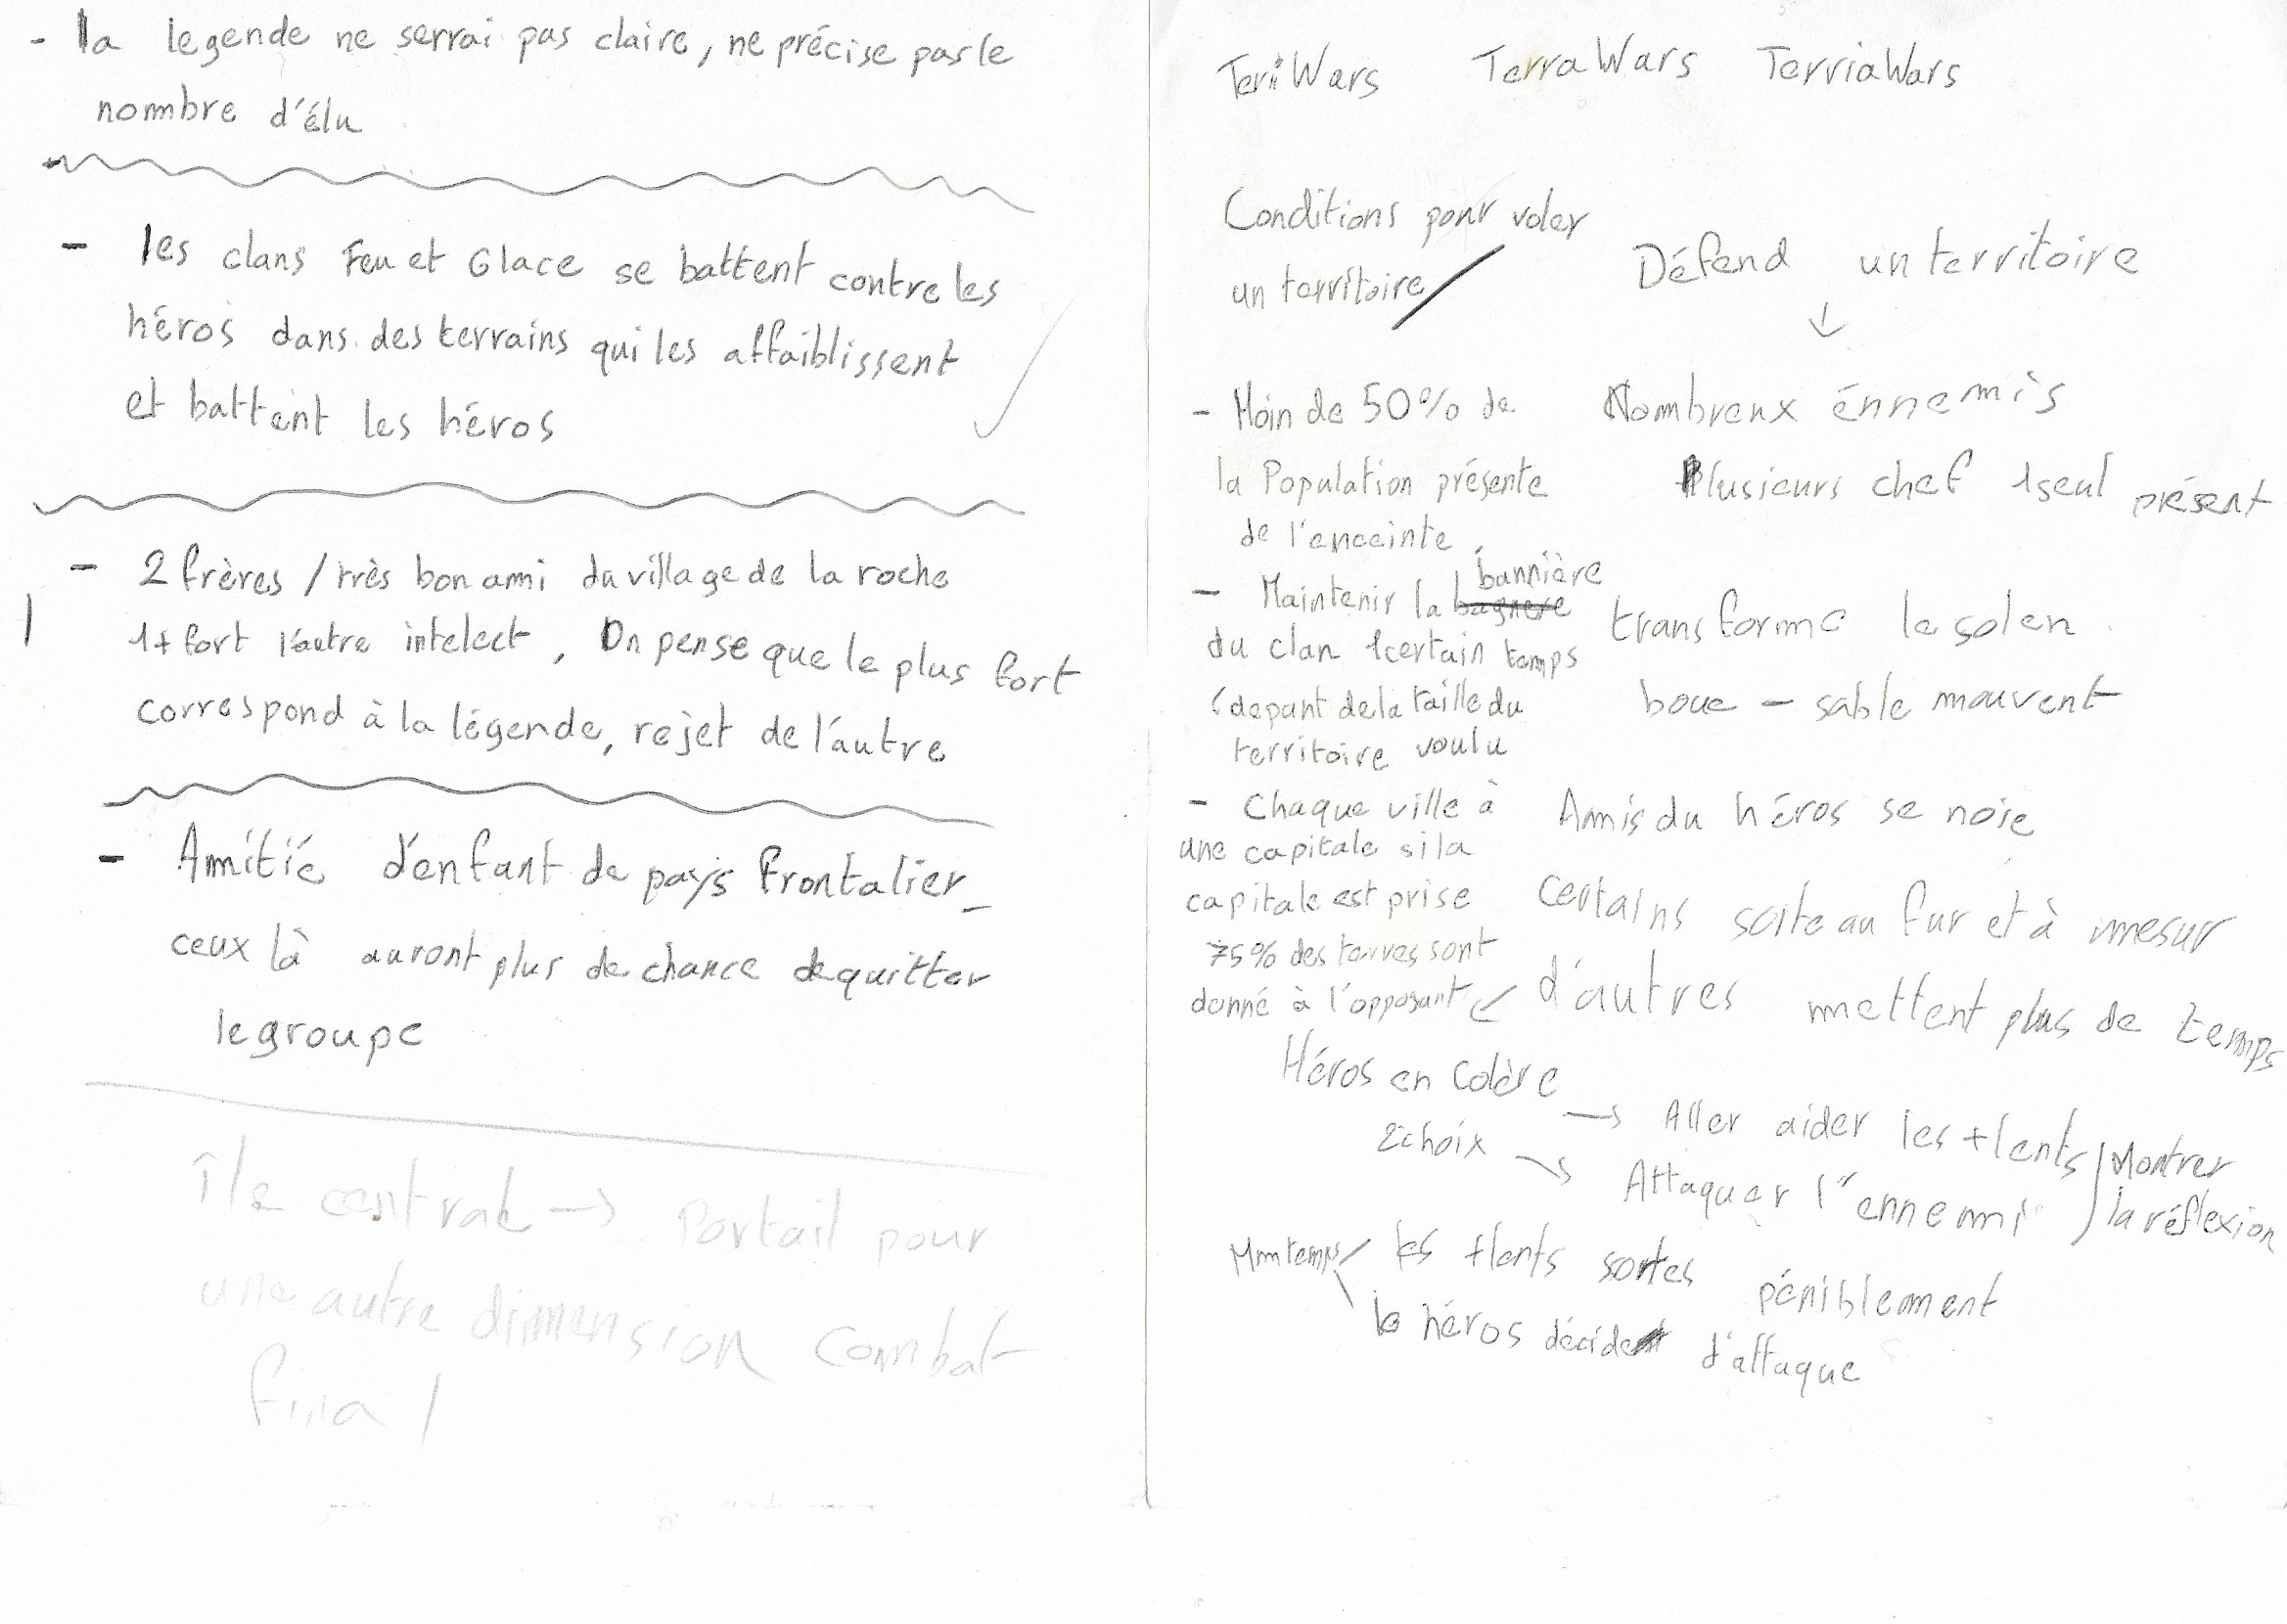 - la legende ne serrai pas claire, ne précise pas le
nombre d'élu
- les clans Feu et Glace se battent contre les
héros dans des terrains qui les affaiblissent
et battent les héros
- 2 frères / très bon ami du village de la roche
1 + fort l'autre intelect, On pense que le plus fort
correspond à la légende, rejet de l'autre
- Amitié d'enfant de pays frontalier_
ceux là auront plus de chance de quitter
le groupe
île centrale -> Portail pour
une autre dimension combat
final
TeriWars TerraWars TerriaWars
Conditions pour voler
un territoire /
- Moin de 50% de
la Population présente
de l'enceinte,
bannière
- Maintenir la bagnere
du clan 1 certain temps
(depant de la taille du
territoire voulu
- Chaque ville à
une capitale si la
capitale est prise
75% des terres sont
donné à l'opposant
Défend un territoire
↓
Nombreux énnemis
Plusieurs chef 1 seul présent
transforme le sol en
boue - sable mouvent
Amis du héros se noie
Certains sorte au fur et à mesur
d'autres mettent plus de temps
Héros en Colère
2 choix -> Aller aider les + lents
-> Attaquer l'"ennemi"
Montrer
la réflexion
Mm temps / les + lents sortes péniblement
\ le héros décide d'attaque